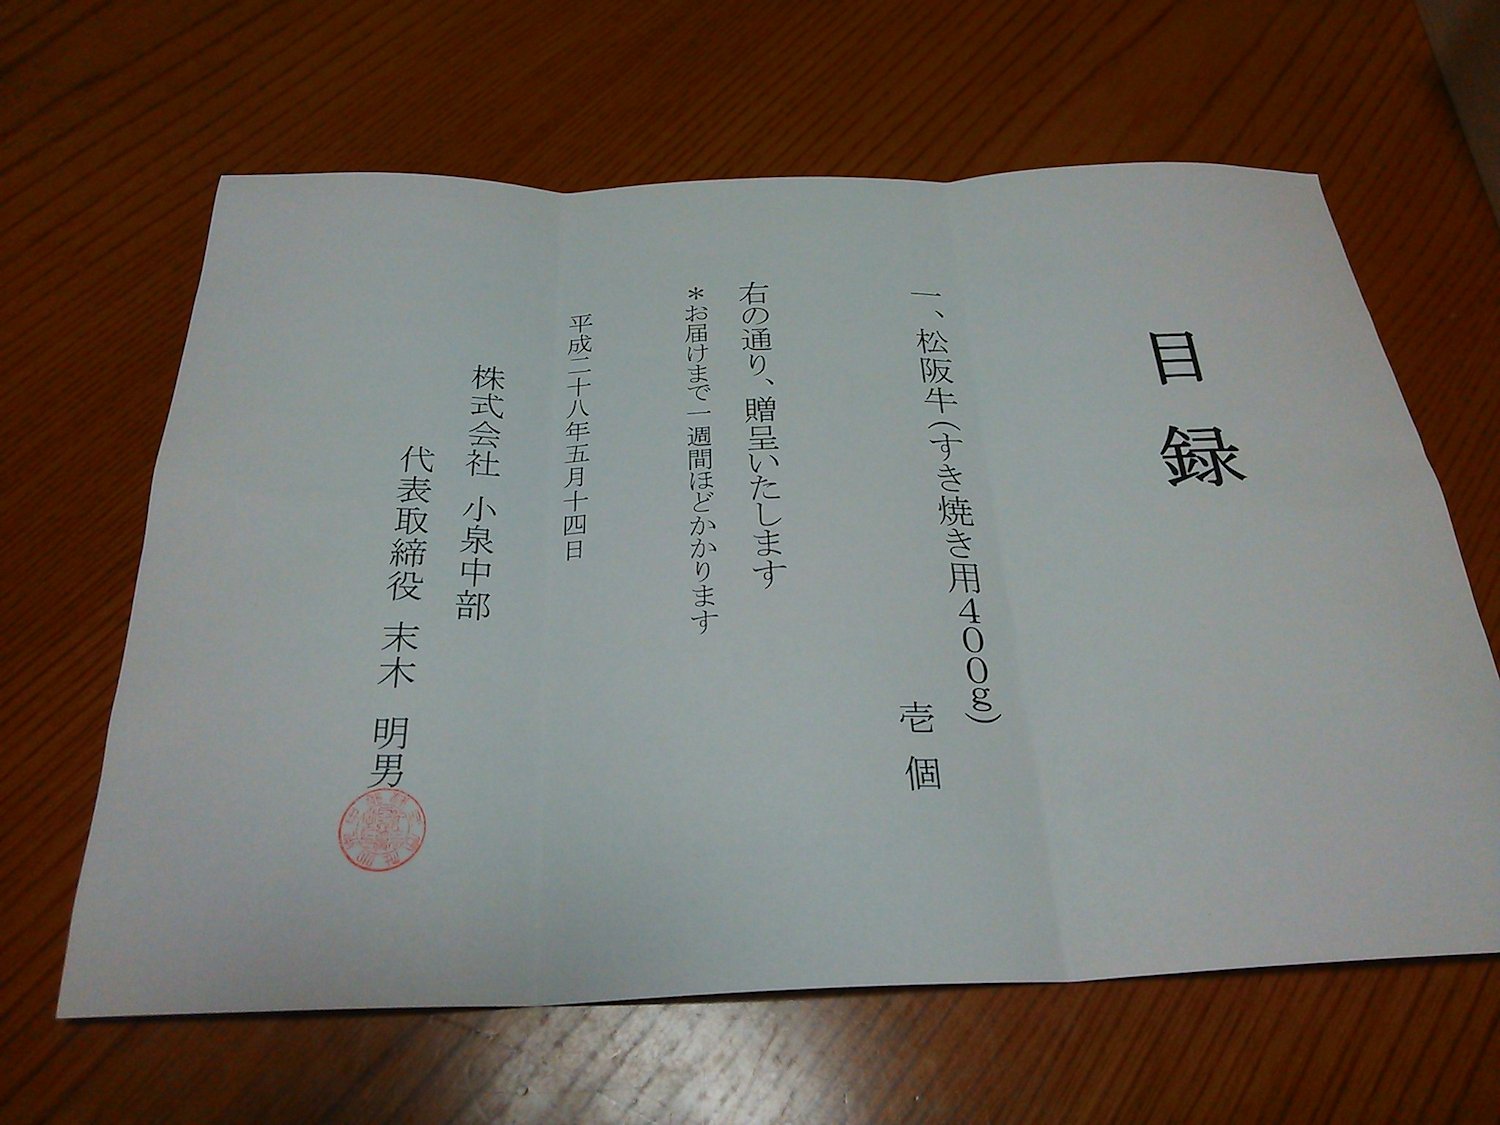 目録
一、松阪牛(すき焼き用400g)
壱個
右の通り、贈呈いたします
*お届けまで一週間ほどかかります
平成二十八年五月十四日
株式会社 小泉中部
代表取締役 末木 明男